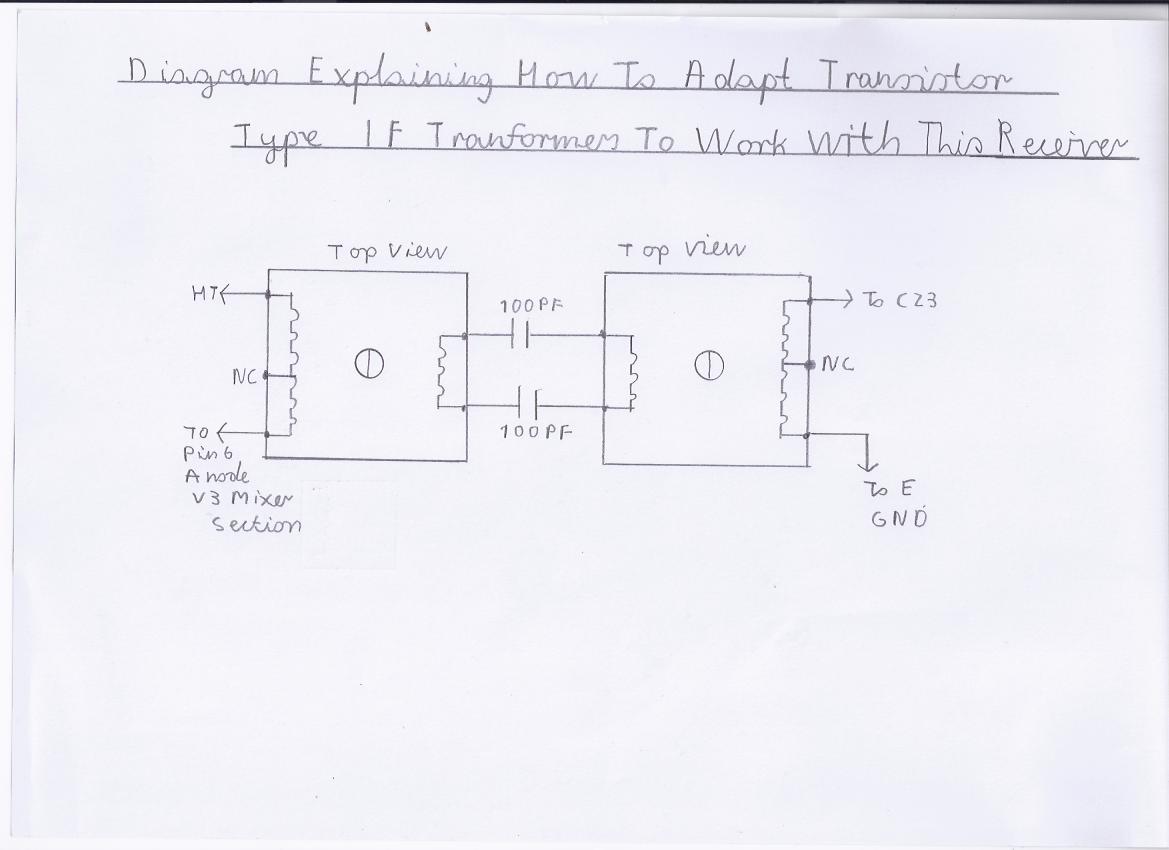 Diagram Explaining How To Adapt Transistor
Type IF Tranformers To Work With This Receiver
Top View
Top View
HT
100PF
To C23
NC
NC
TO
Pin 6
Anode
V3 Mixer
Section
100PF
To E
GND